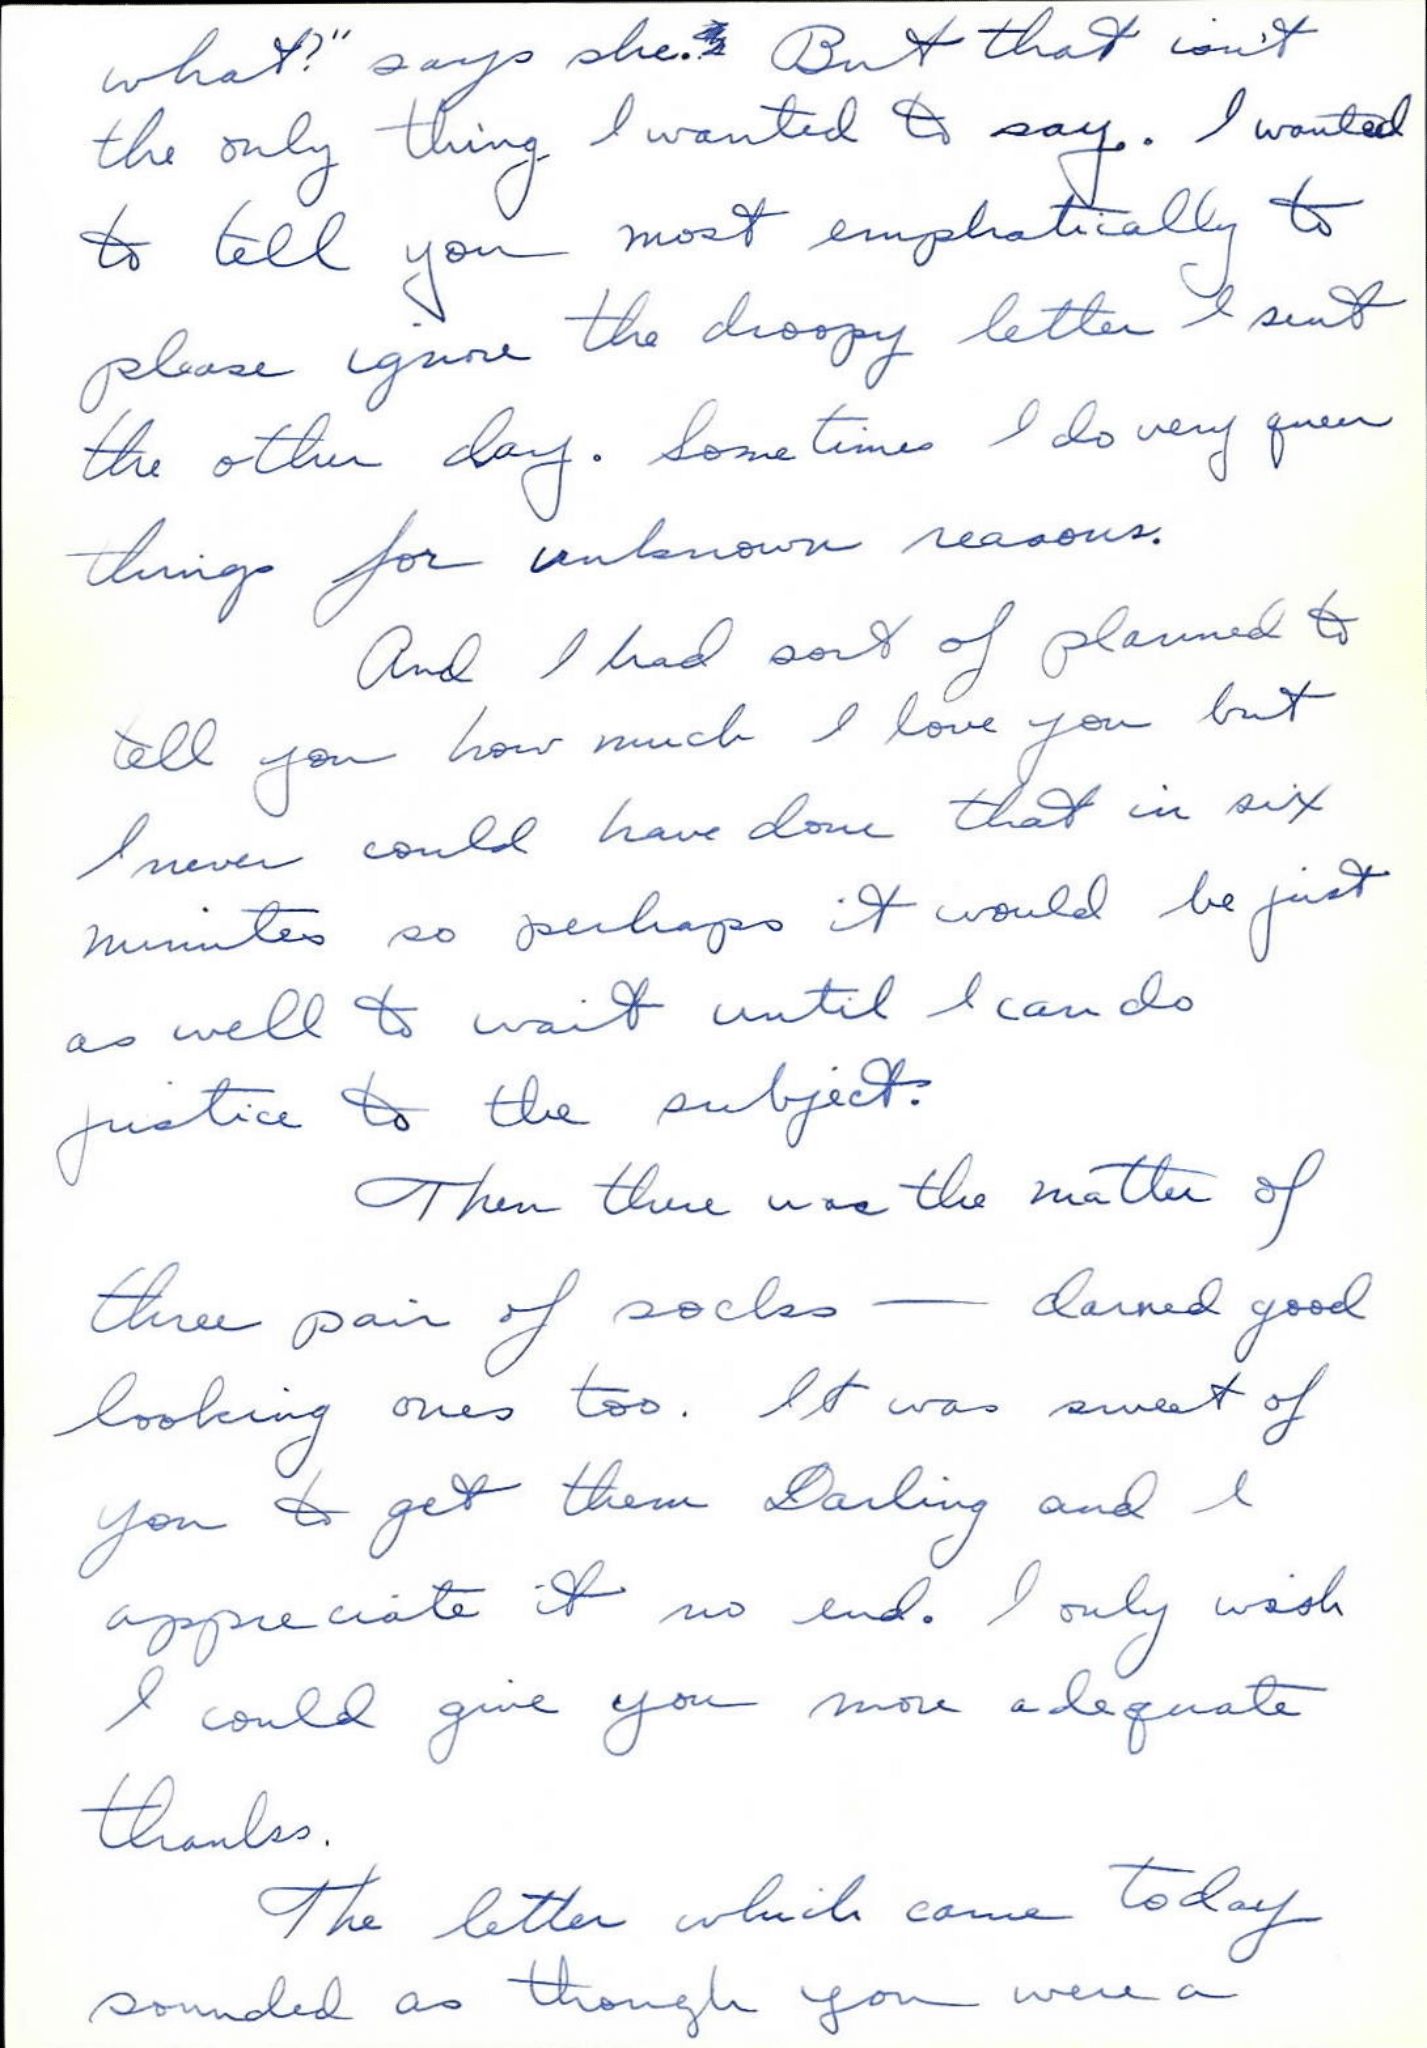 what?" says she. But that isn't
the only thing I wanted to say. I wanted
to tell you most emphatically to
please ignore the droopy letter I sent
the other day. Sometimes I do very queer
things for unknown reasons.
And I had sort of planned to
tell you how much I love you but
I never could have done that in six
minutes so perhaps it would be just
as well to wait until I can do
justice to the subject.
Then there was the matter of
three pair of socks — darned good
looking ones too. It was sweet of
you to get them Darling and I
appreciate it no end. I only wish
I could give you more adequate
thanks.
The letter which came today
sounded as though you were a